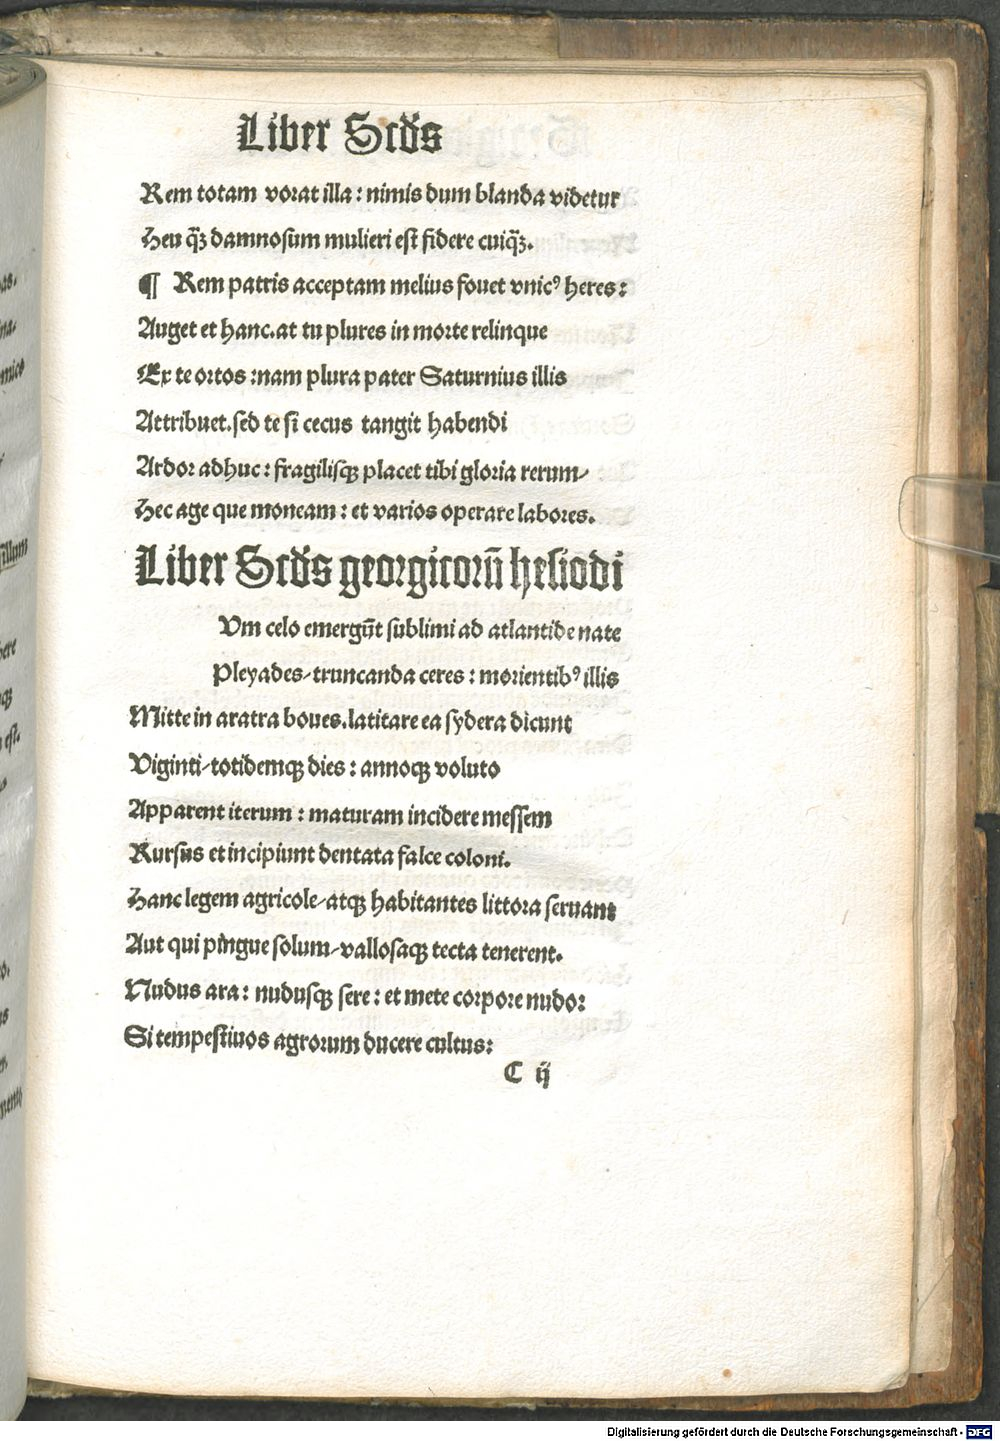 Liber Scďs
Rem totam vorat illa : nimis dum blanda videtur
Heu q̃ꝫ damnosum mulieri est fidere cuiq̃ꝫ.
¶ Rem patris acceptam melius fouet vnicꝰ heres :
Auget et hanc.at tu plures in morte relinque
Ex te ortos :nam plura pater Saturnius illis
Attribuet.sed te si cecus tangit habendi
Ardor adhuc : fragilisqꝫ placet tibi gloria rerum/
Hec age que moneam : et varios operare labores.
Liber Scďs georgicorū hesiodi
Vm celo emergūt sublimi ad atlantide nate
Pleyades/truncanda ceres : morientibꝰ illis
Mitte in aratra boues.latitare ea sydera dicunt
Viginti/totidemqꝫ dies : annoqꝫ voluto
Apparent iterum : maturam incidere messem
Rursus et incipiunt dentata falce coloni.
Hanc legem agricole/atqꝫ habitantes littora seruant
Aut qui pingue solum/vallosaqꝫ tecta tenerent.
Nudus ara : nudusqꝫ sere : et mete corpore nudo:
Si tempestiuos agrorum ducere cultus:
C ij
Digitalisierung gefördert durch die Deutsche Forschungsgemeinschaft - DFG